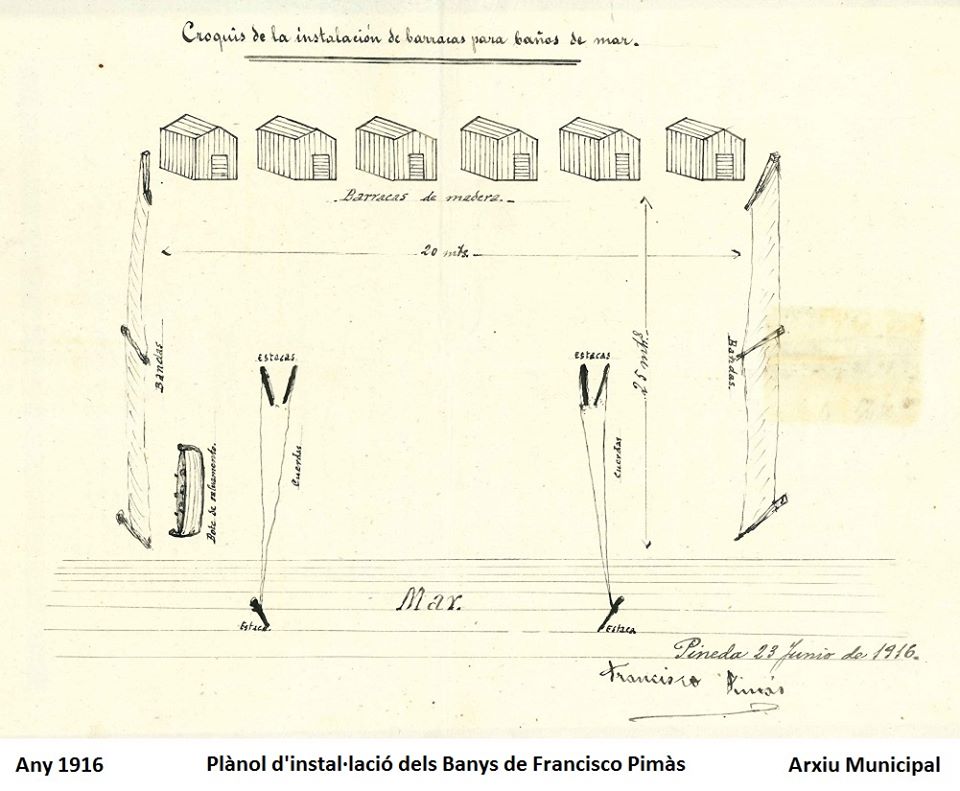 Croquis de la instalación de barracas para baños de mar.
Barracas de madera.
20 mts.
25 mts
Bandas
Bandas.
Estacas.
Estacas
Cuerdas
Cuerdas
Bote de salvamento.
Mar.
Estaca.
Estaca
Pineda 23 Junio de 1916.
Francisco Pimás
Any 1916
Plànol d'instal·lació dels Banys de Francisco Pimàs
Arxiu Municipal